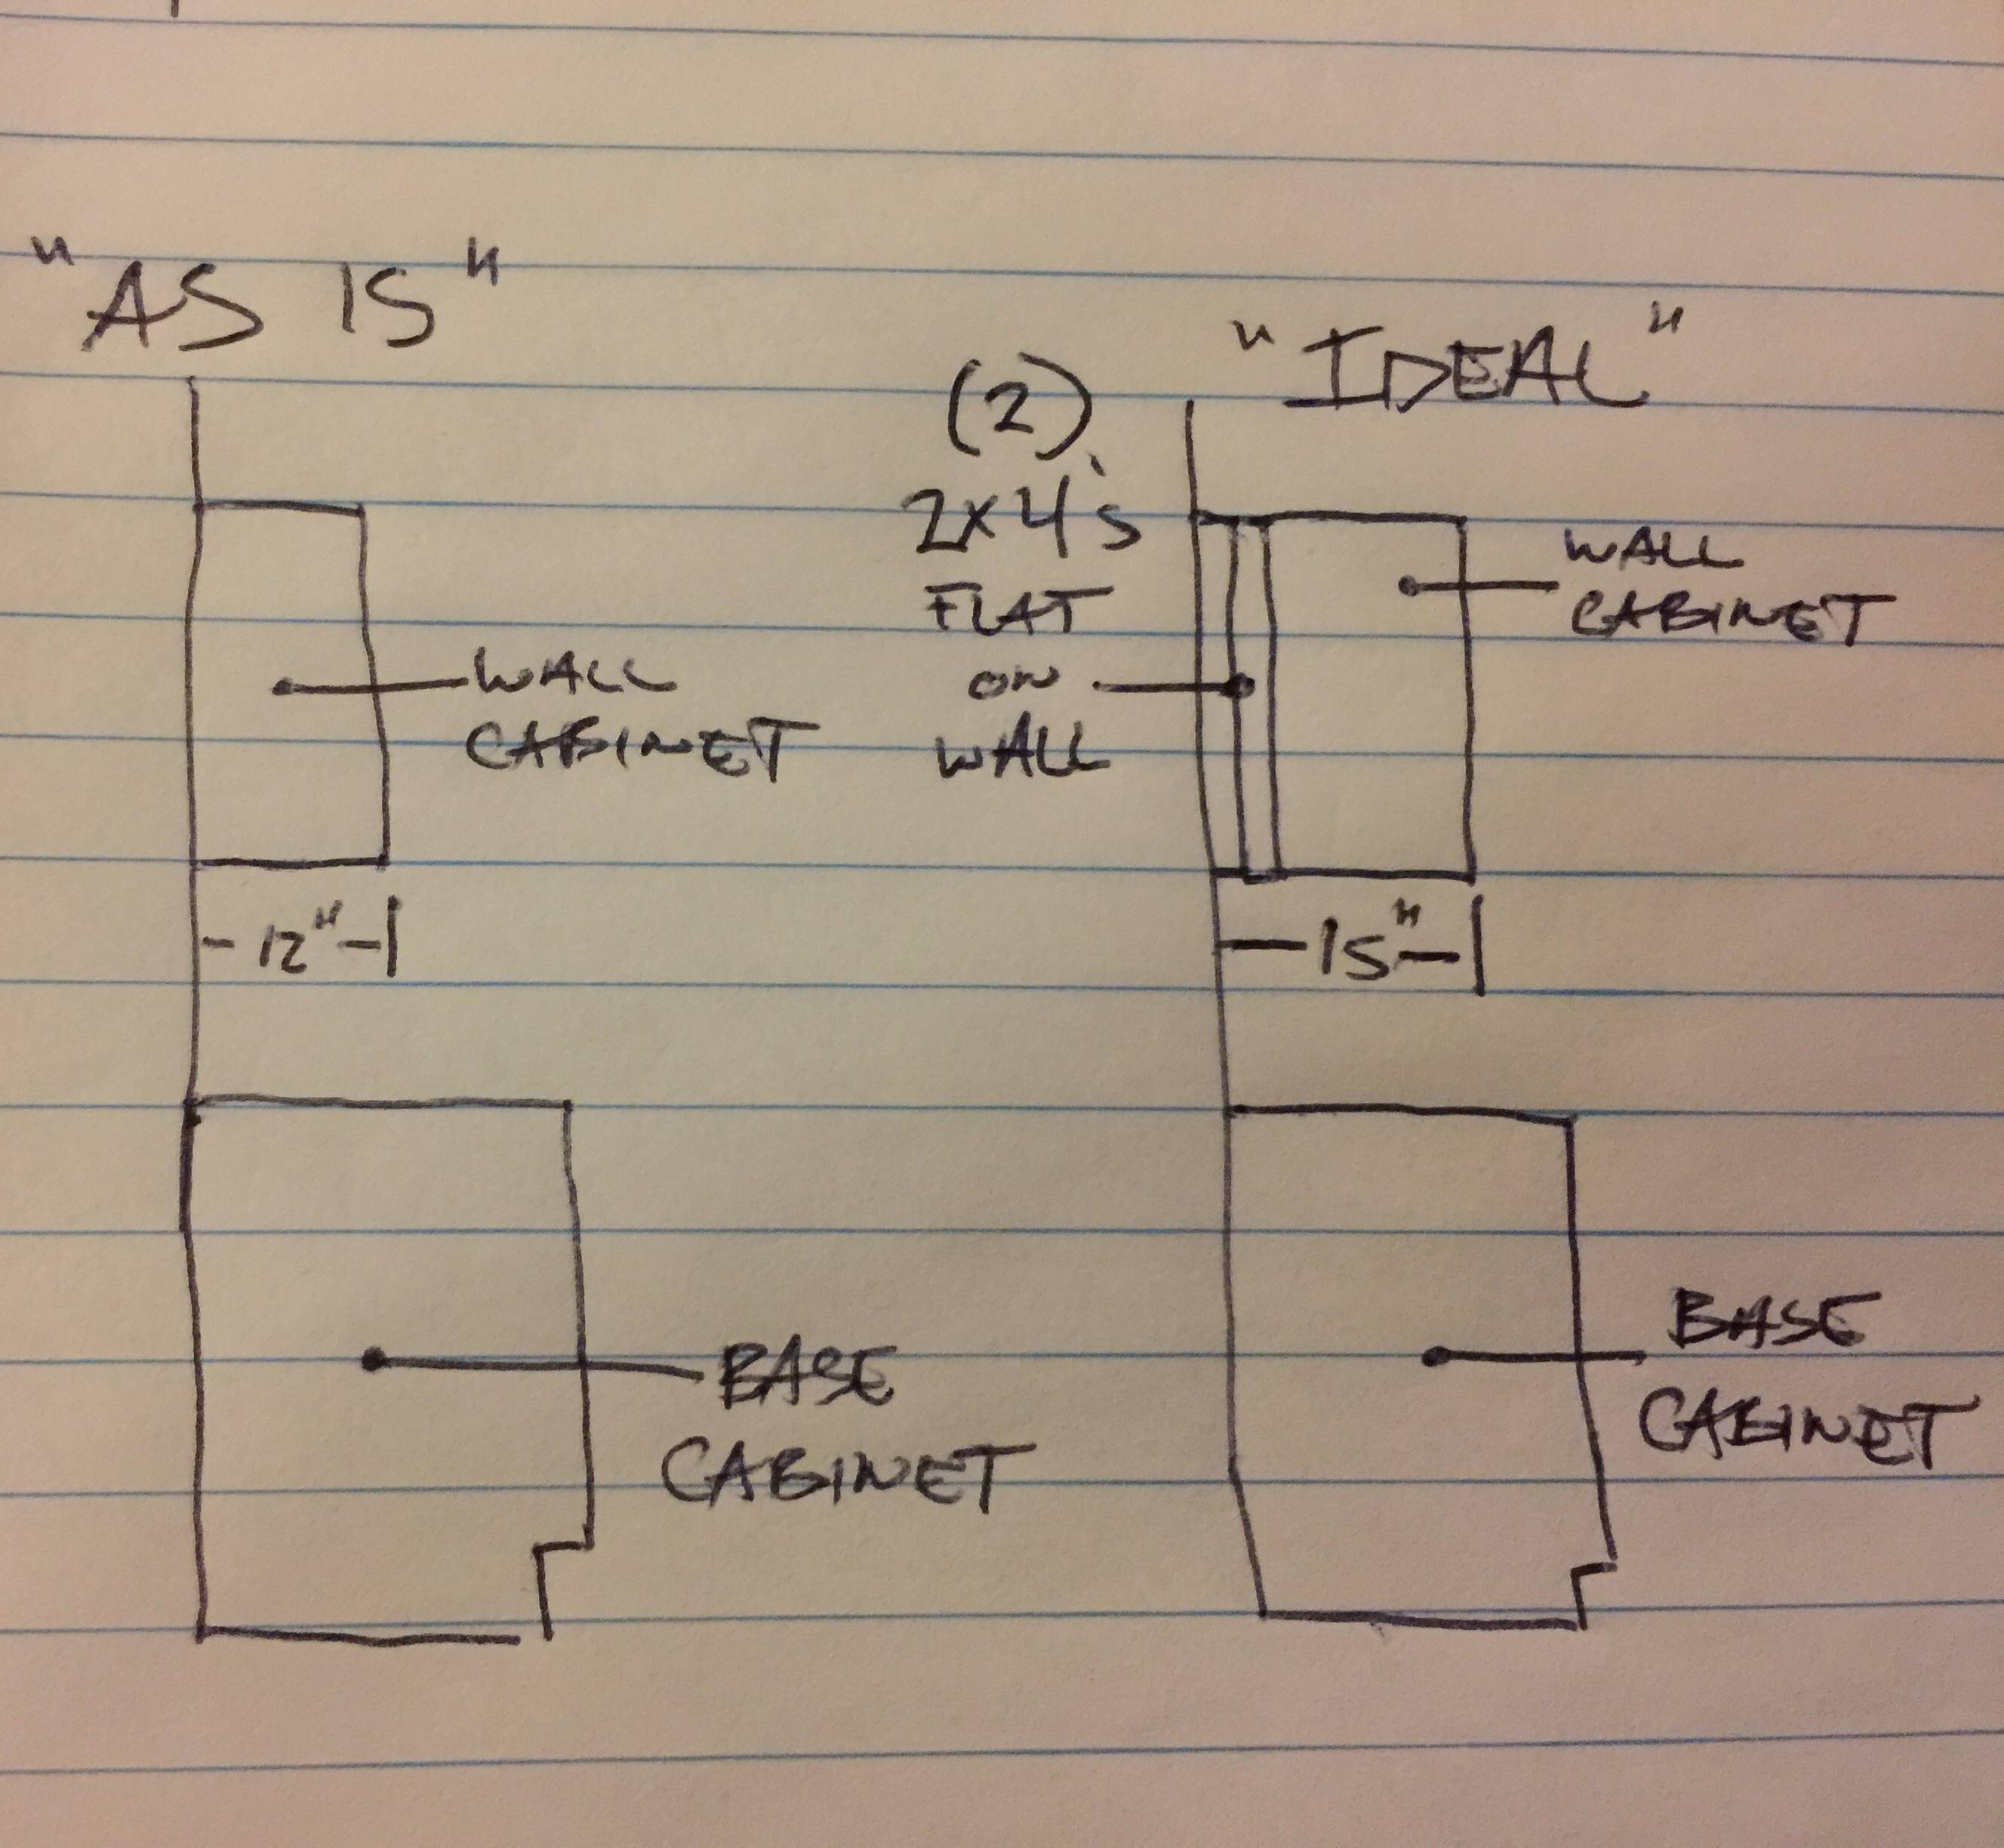 "AS IS"
WALL
CABINET
12"
BASE
CABINET
"IDEAL"
(2)
2x4's
FLAT
ON
WALL
WALL
CABINET
15"
BASE
CABINET